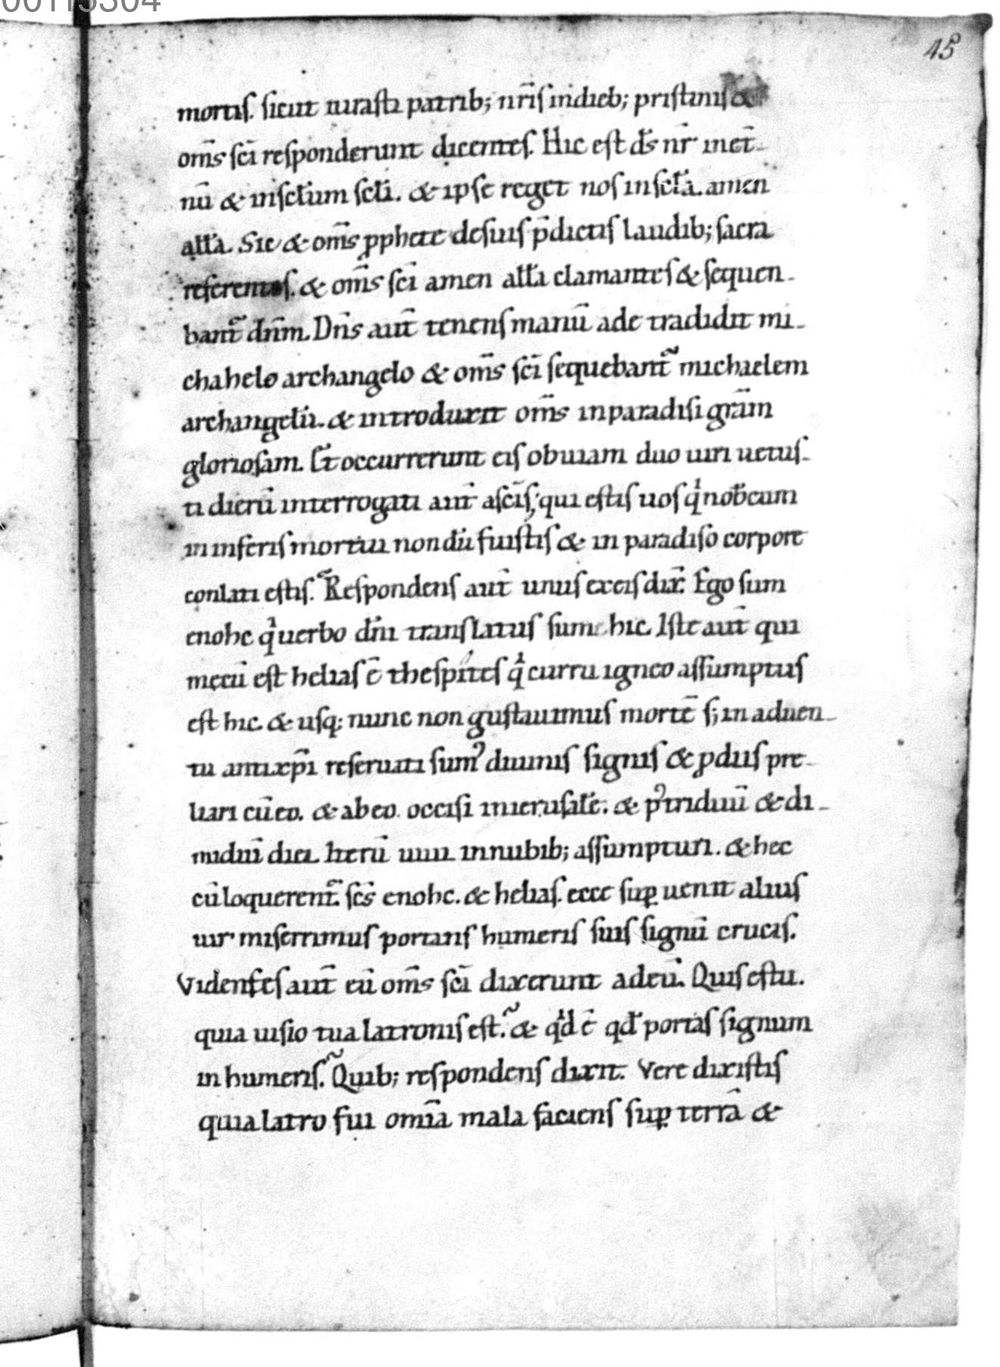 00115304
45
mortiſ. ſicut iuraſti patrib; nr̄iſ indieb; priſtiniſ &
om̄s ſc̄i reſponderunt dicenteſ. Hic eſt d̄s nr̄ inet̄-
nū & inſcl̄um ſcl̄i. & ipſe reget noſ inſcl̄a. amen
all̄a. Sic & om̄s ꝓphete deſuiſ p̄dictiſ laudib; ſacra
referenteſ. & om̄s ſc̄i amen all̄a clamanteſ & ſequen-
bant̄ dn̄m. Dn̄s aut̄ tenenſ manū ade tradidit mi-
chahelo archangelo & om̄s ſc̄i ſequebant̄ michaelem
archangelū. & introduxit om̄s inparadiſi gr̄am
glorioſam. Et occurrerunt eiſ obuiam duo uiri uetuſ-
ti dierū interrogati aut̄ aſc̄iſ; qui eſtiſ uoſ qͥ nob̄cum
in inferiſ mortui nondū fuiſtiſ & in paradiſo corpore
conlati eſtiſ. Reſpondenſ aut̄ unuſ exeiſ dix̄. Ego ſum
enohc qͥ uerbo dn̄i tranſlatuſ ſum hic. Iſte aut̄ qui
mecū eſt heliaſ ē theſpiteſ qͥ curru igneo aſſumptuſ
eſt hic. & uſq; nunc non guſtauimuſ mortē ſ; in aduen-
tu antixp̄i reſeruati ſumꝰ diuiniſ ſigniſ & ꝓdiiſ pre-
liari cū eo. & ab eo occiſi inieruſal̄e. & pꝰ triduū & di-
midiū diei. Iterū uiui innubib; aſſumpturi. & hec
cū loquerent̄. ſc̄s enohc. & heliaſ. ecce ſuꝑ uenit aliuſ
uir miſerrimuſ portanſ humeriſ ſuiſ ſignū cruciſ.
Videnteſ aut̄ eū om̄s ſc̄i dixerunt adeū. Quiſ eſ tu.
quia uiſio tua latroniſ eſt. & qͥd ē qd̄ portaſ ſignum
in humeriſ. Quib; reſpondenſ dixit. Vere dixiſtiſ
quia latro fui om̄ia mala facienſ ſuꝑ terrā &